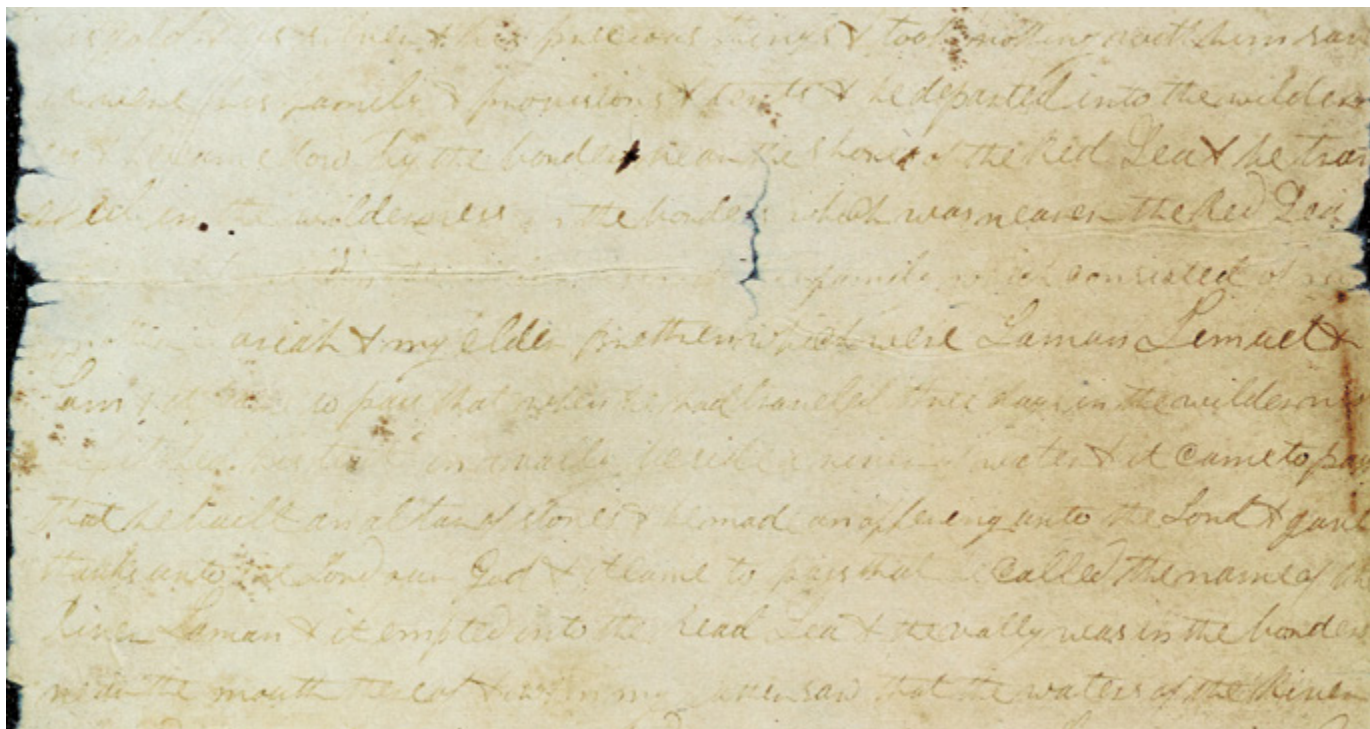 gold & his silver & his precious things & took nothing with him save
family & provisions & tents & he departed into the wilder
& he came down by the borders near the shores of the Red Sea & he tra
in the wilderness in the borders which was nearer the Red Sea
family which consisted of
ariah & my elder brethren which were Laman Lemuel &
Sam & it came to pass that when he had traveled three days in the wilderness
he pitched his tent in a vally beside a river of water & it came to pass
that he built an altar of stones & he mad an offering unto the Lord & gave
thanks unto the Lord our God & it came to pass that he called the name of the
River Laman & it emptied into the Read Sea & the vally was in the borders
the mouth thereof & when my saw that the waters of the River